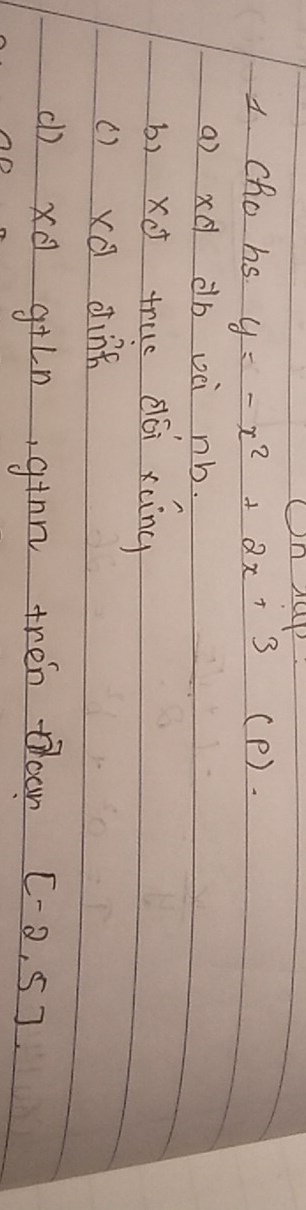 Ôn tập
1. Cho hs y = -x² + 2x + 3 (P).
a) xđ đb và nb.
b) xđ trục đối xứng
c) xđ đỉnh
d) xđ gtln, gtnn trên đoạn [-2,5].